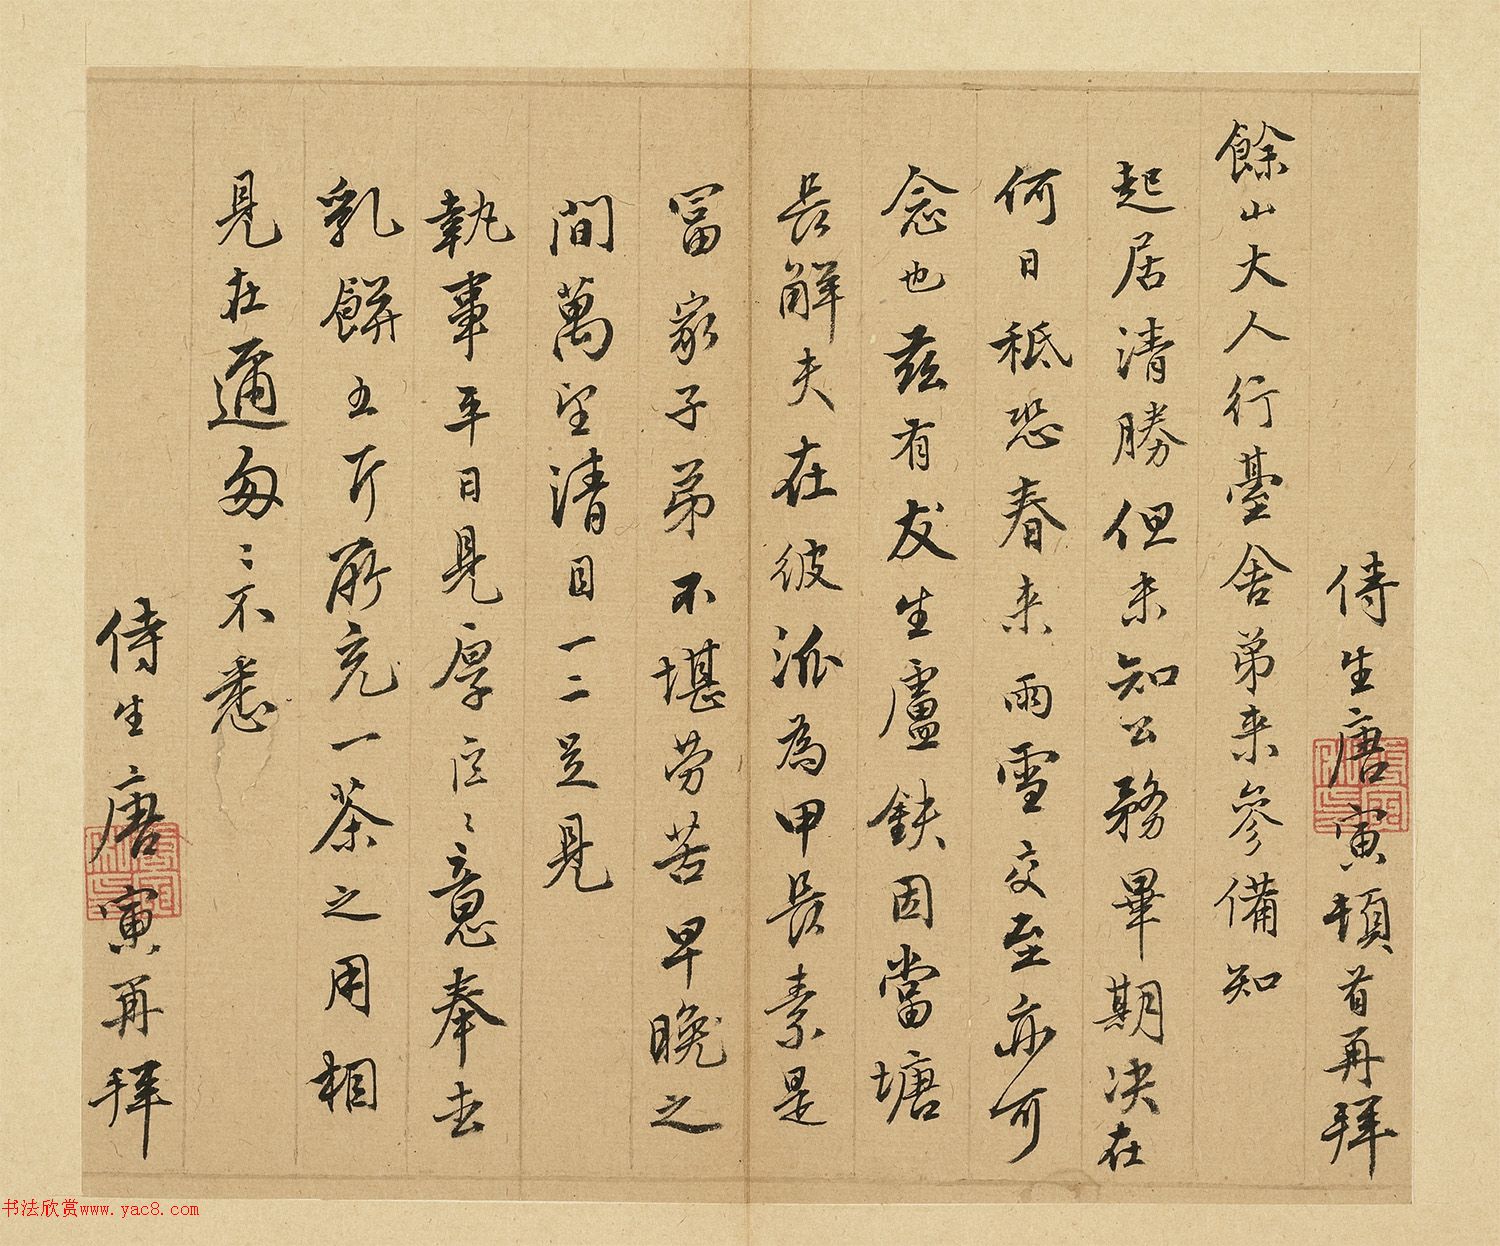 侍生唐寅頓首再拜
餘山大人行臺舍弟来參備知
起居清勝但未知公務畢期决在
何日秪恐春来雨雪交至亦可
念也茲有友生盧鉄因當塘
長解夫在彼派為甲長素是
冨家子弟不堪劳苦早晚之
間萬望清目一二是見
執事平日見厚区〻意奉去
乳餅五斤所充一茶之用相
見在邇匆〻不悉
侍生唐寅再拜
书法欣赏www.yac8.com